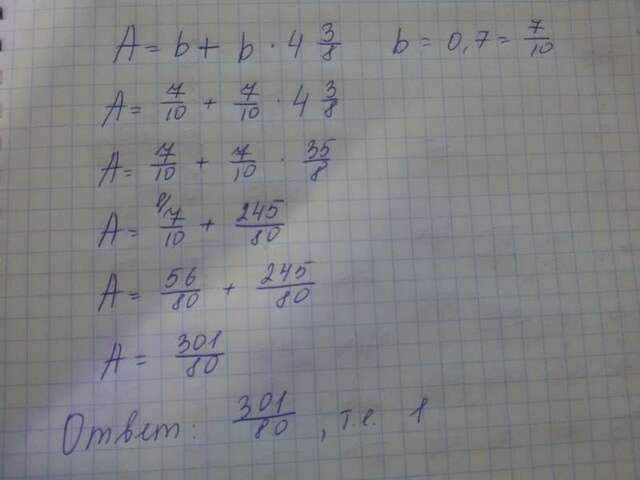 A = b + b · 4 3/8 b = 0,7 = 7/10
A = 7/10 + 7/10 · 4 3/8
A = 7/10 + 7/10 · 35/8
A = 8/ 7/10 + 245/80
A = 56/80 + 245/80
A = 301/80
Ответ: 301/80, т.е. 1